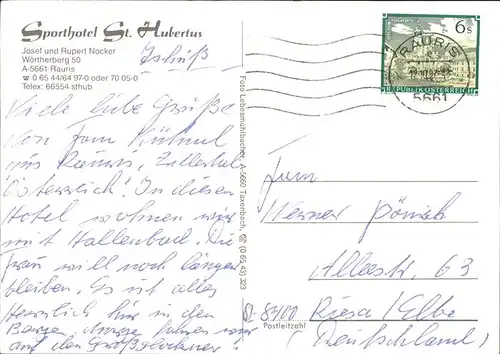 Sporthotel St. Hubertus
Josef und Rupert Nocker
Wörtherberg 50
A-5661 Rauris
☎ 0 65 44/64 97-0 oder 70 05-0
Telex: 66554 sthub
Tschüß
Viele liebe Grüße
von Fam
aus Rauris, Zillertal
Österreich. In diesen
Hotel wohnen wir
mit Hallenbad. Die
Frau will noch länger
bleiben. Es ist alles
Herrlich hier in den
Berge, fahren wir
auf den Großglockner
Foto Lebesmühlbacher, A-5660 Taxenbach, ☎ (0 65 43) 323
6s
REPUBLIK ÖSTERREICH
RAURIS
5661
Fam
Werner
Allestr. 63
D-8400
Riesa/Elbe
Postleitzahl
(Deutschland)